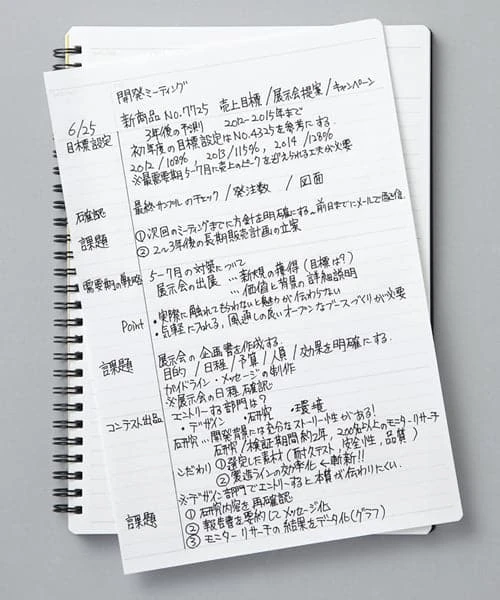 開発ミーティング
新商品 No.7725 売上目標/展示会提案/キャンペーン
6/25 3年後の予測 2012-2015年まで
目標設定 初年度の目標設定はNo.4325を参考にする.
2012/108%, 2013/115%, 2014/128%
※最需要期5-7月に売上のピークを迎えられる工夫が必要
再確認 最終サンプルのチェック/発注数 /図面
課題 ①次回のミーティングまでに方針を明確にする。前日までにメールで配信.
②2~3年後の長期販売計画の立案
需要期の戦略 5-7月の対策について
展示会の出展 …新規の獲得(目標は?)
…価値と背景の詳細説明
Point ・実際に触れてもらわないと魅力が伝わらない
・気軽に入れる,風通しの良いオープンなブースづくりが必要
課題 展示会の企画書を作成する.
目的/日程/予算/人員/効果を明確にする.
ガイドライン・メッセージの制作
※展示会の日程確認.
コンテスト出品 エントリーする部門は?
・デザイン ・研究 ・環境
研究…開発背景には充分なストーリー性がある!
研究/検証期間約2年,200名以上のモニターリサーチ
こだわり ①選定した素材(耐久テスト,安全性,品質)
②製造ラインの効率化←斬新!!
※デザイン部門でエントリーすると本質が伝わりにくい.
課題 ①研究内容を再確認
②報告書を要約してメッセージ化
③モニターリサーチの結果をデータ化(グラフ)